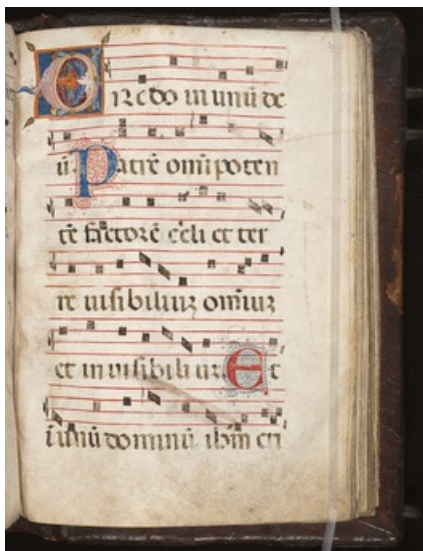 CRedo in unū de
ū. Patrē om̄ipoten
tē factorē celi et ter
re uisibiliuʒ om̄iuʒ
et in uisibiliuʒ Et
ī unū dominū ihm̄ cri